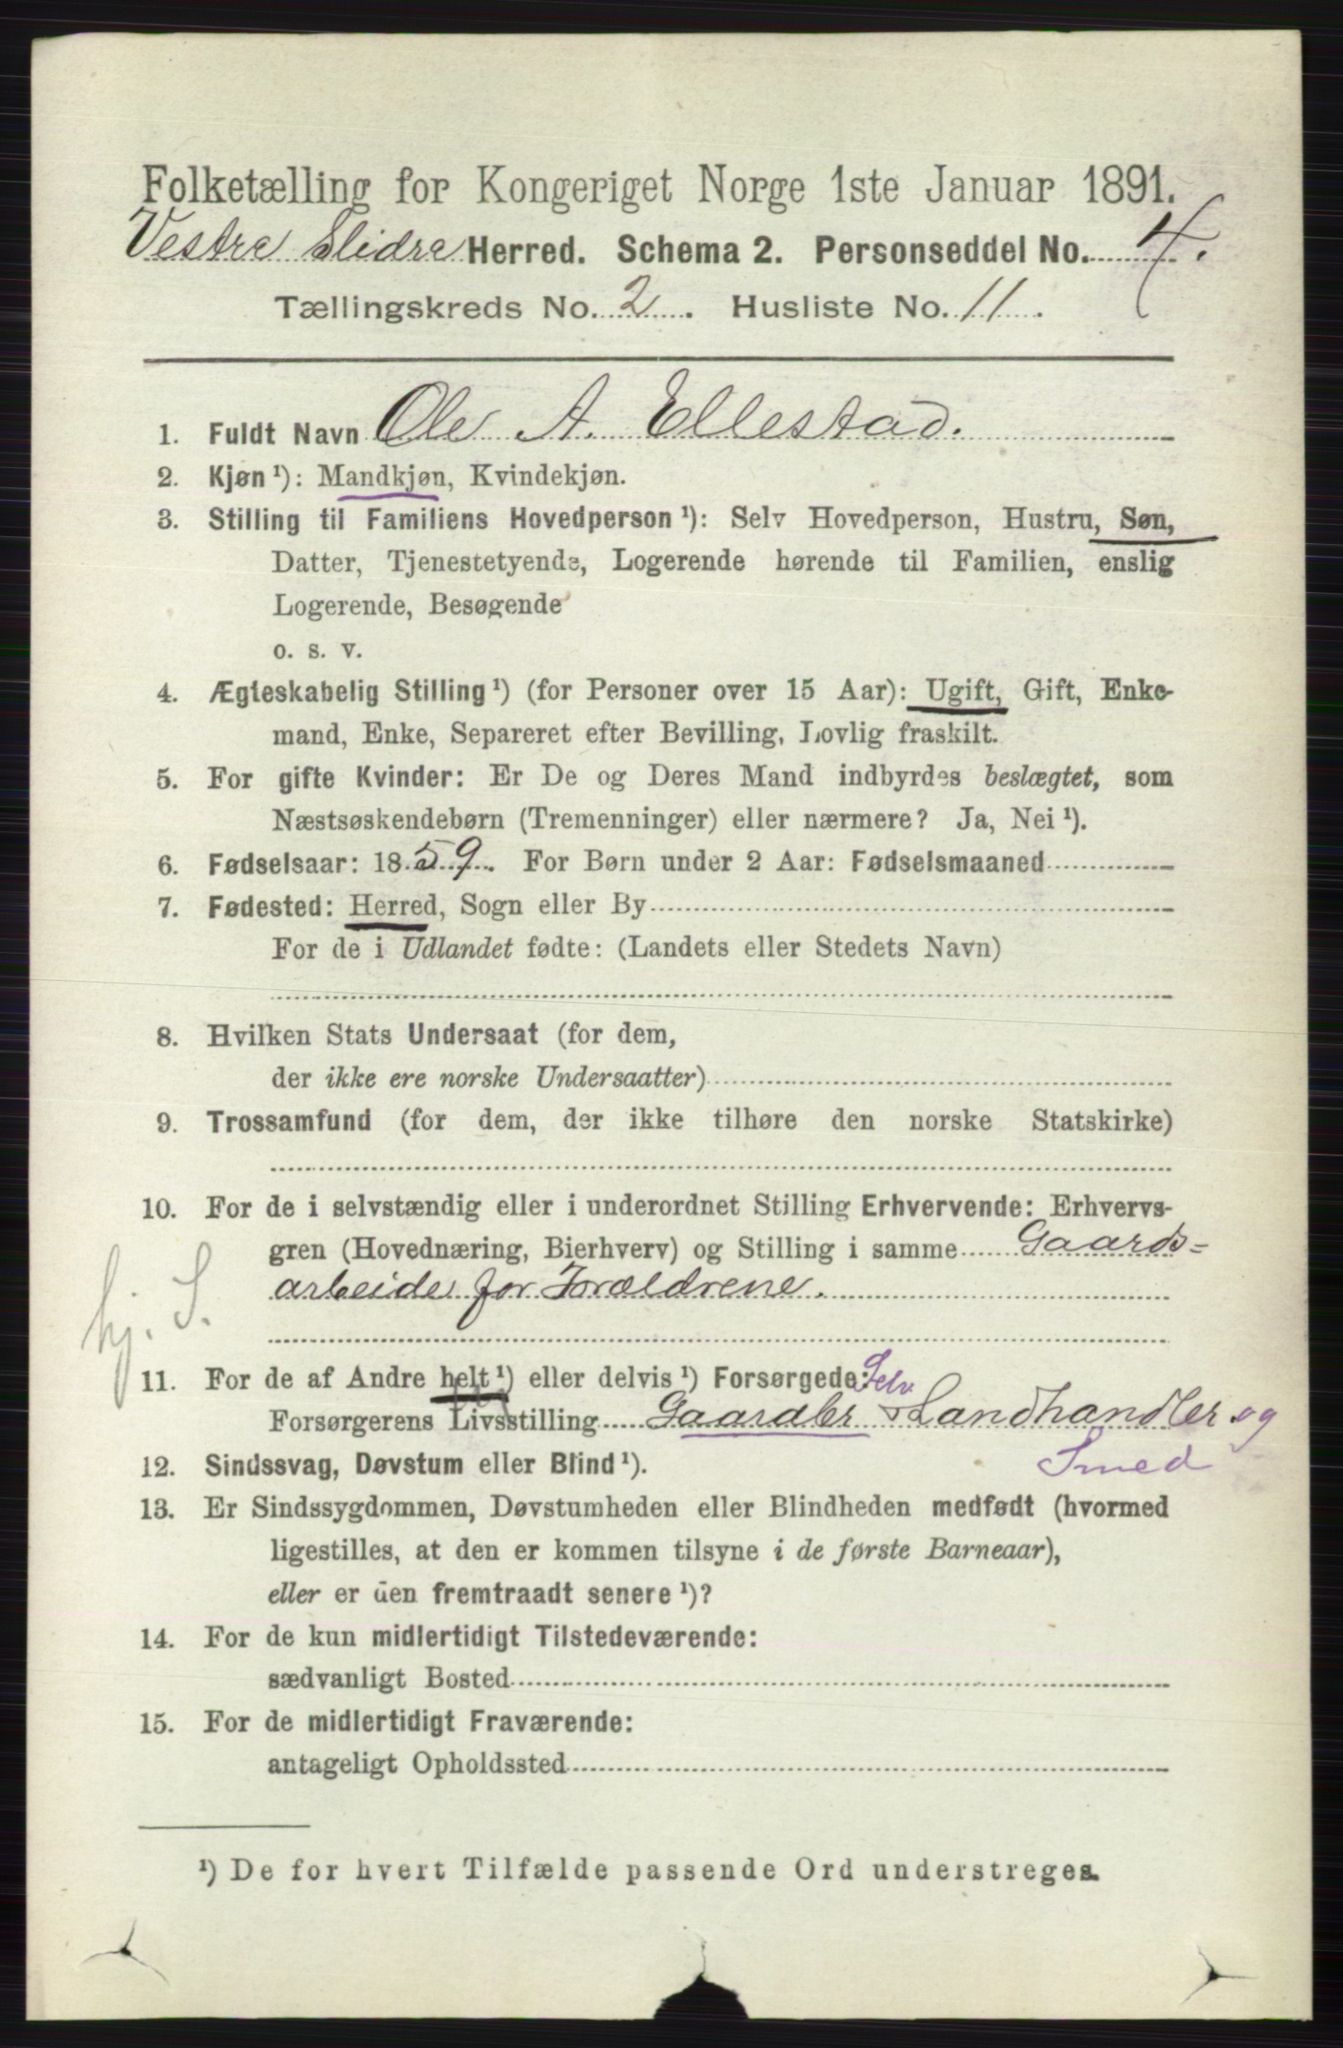 Folketælling for Kongeriget Norge 1ste Januar 1891.
Vestre Slidre Herred. Schema 2. Personseddel No. 4.
Tællingskreds No. 2. Husliste No. 11.
1. Fuldt Navn Ole A. Ellestad.
2. Kjøn¹): Mandkjøn, Kvindekjøn.
3. Stilling til Familiens Hovedperson¹): Selv Hovedperson, Hustru, Søn,
Datter, Tjenestetyende, Logerende hørende til Familien, enslig
Logerende, Besøgende
o. s. v.
4. Ægteskabelig Stilling¹) (for Personer over 15 Aar): Ugift, Gift, Enke-
mand, Enke, Separeret efter Bevilling, Lovlig fraskilt.
5. For gifte Kvinder: Er De og Deres Mand indbyrdes beslægtet, som
Næstsøskendebørn (Tremenninger) eller nærmere? Ja, Nei¹).
6. Fødselsaar: 1859. For Børn under 2 Aar: Fødselsmaaned
7. Fødested: Herred, Sogn eller By
For de i Udlandet fødte: (Landets eller Stedets Navn)
8. Hvilken Stats Undersaat (for dem,
der ikke ere norske Undersaatter)
9. Trossamfund (for dem, der ikke tilhøre den norske Statskirke)
10. For de i selvstændig eller i underordnet Stilling Erhvervende: Erhvervs-
gren (Hovednæring, Bierhverv) og Stilling i samme Gaards=
arbeide for Forældrene.
hj. S.
11. For de af Andre helt¹) eller delvis¹) Forsørgede: Selv
Forsørgerens Livsstilling Gaardbr Landhandler og
Smed
12. Sindssvag, Døvstum eller Blind¹).
13. Er Sindssygdommen, Døvstumheden eller Blindheden medfødt (hvormed
ligestilles, at den er kommen tilsyne i de første Barneaar),
eller er den fremtraadt senere¹)?
14. For de kun midlertidigt Tilstedeværende:
sædvanligt Bosted
15. For de midlertidigt Fraværende:
antageligt Opholdssted
¹) De for hvert Tilfælde passende Ord understreges.